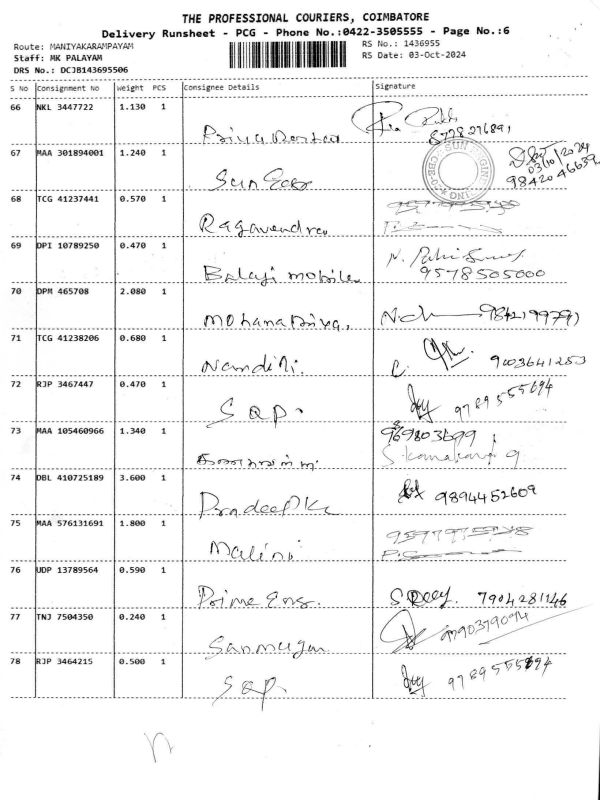 THE PROFESSIONAL COURIERS, COIMBATORE
Delivery Runsheet - PCG - Phone No.:0422-3505555 - Page No.:6
Route: MANIYAKARAMPAYAM
RS No.: 1436955
Staff: MK PALAYAM
RS Date: 03-Oct-2024
DRS No.: DCJB143695506
S No Consignment No Weight PCS Consignee Details Signature
66 NKL 3447722 1.130 1
8728276891
67 MAA 301894001 1.240 1
Sun Eng
SUN
03/10/2024
9842046639
68 TCG 41237441 0.570 1
Ragavendra
69 DPI 10789250 0.470 1
Balaji mobile
9578505000
70 DPM 465708 2.080 1
Mohanapriya,
9842199791
71 TCG 41238206 0.680 1
Nandini.
C.
9003641253
72 RJP 3467447 0.470 1
SQP.
9789555694
73 MAA 105460966 1.340 1
969803699
S. Kanakaraj
74 DBL 410725189 3.600 1
Pradeep K
9894452609
75 MAA 576131691 1.800 1
Malini
76 UDP 13789564 0.590 1
Prime Eng.
7904281146
77 TNJ 7504350 0.240 1
Sanmugam
9790379094
78 RJP 3464215 0.500 1
SQP.
9789555694